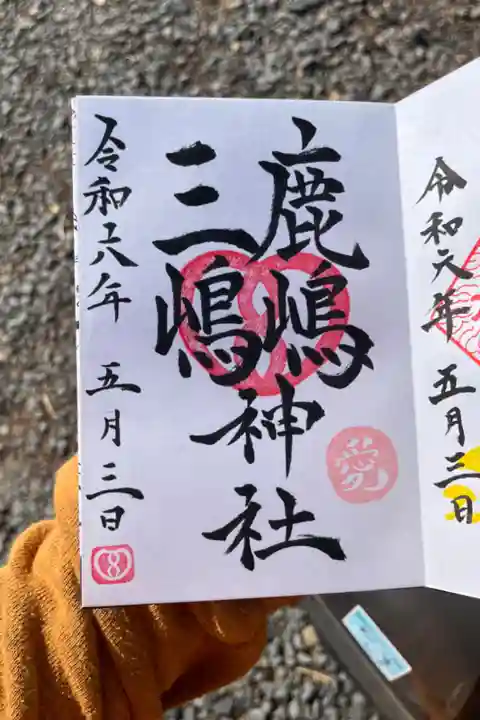 令和六年
五月三日
鹿嶋
三嶋
神社
愛
令和六年
五月三日